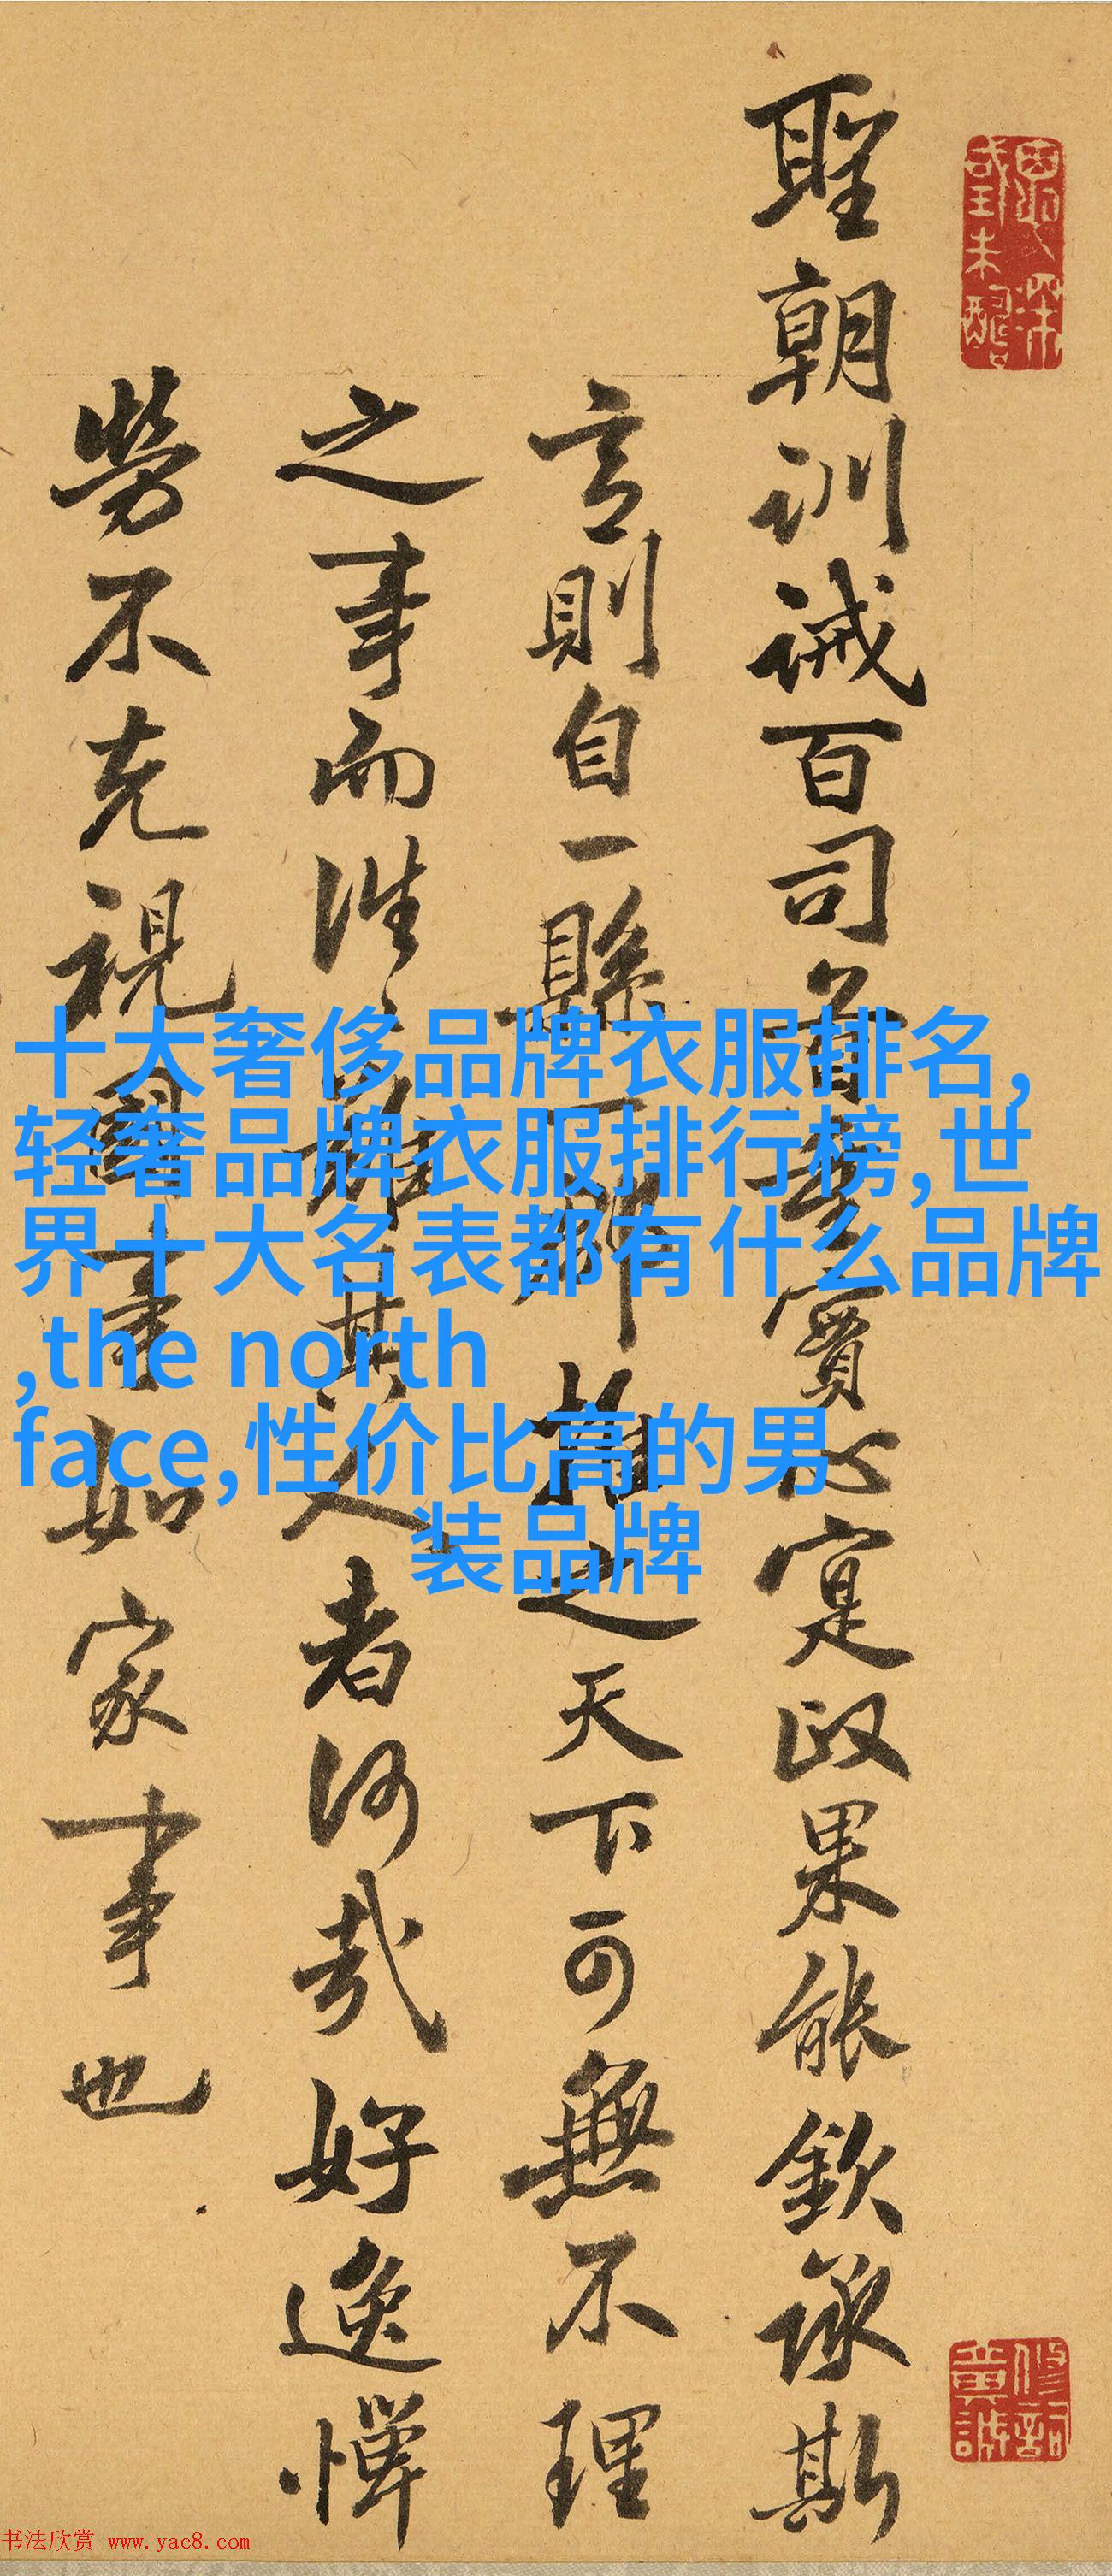 聖朝訓誡百司首重實心寔政果能欽承斯
言則自一縣一郡推之天下可無不理
之事而往往難其人者何哉好逸憚
勞不克視國事如家事也
十大奢侈品牌衣服排名,
轻奢品牌衣服排行榜,世
界十大名表都有什么品牌
,the north
face,性价比高的男
装品牌
书法欣赏 www.yac8.com